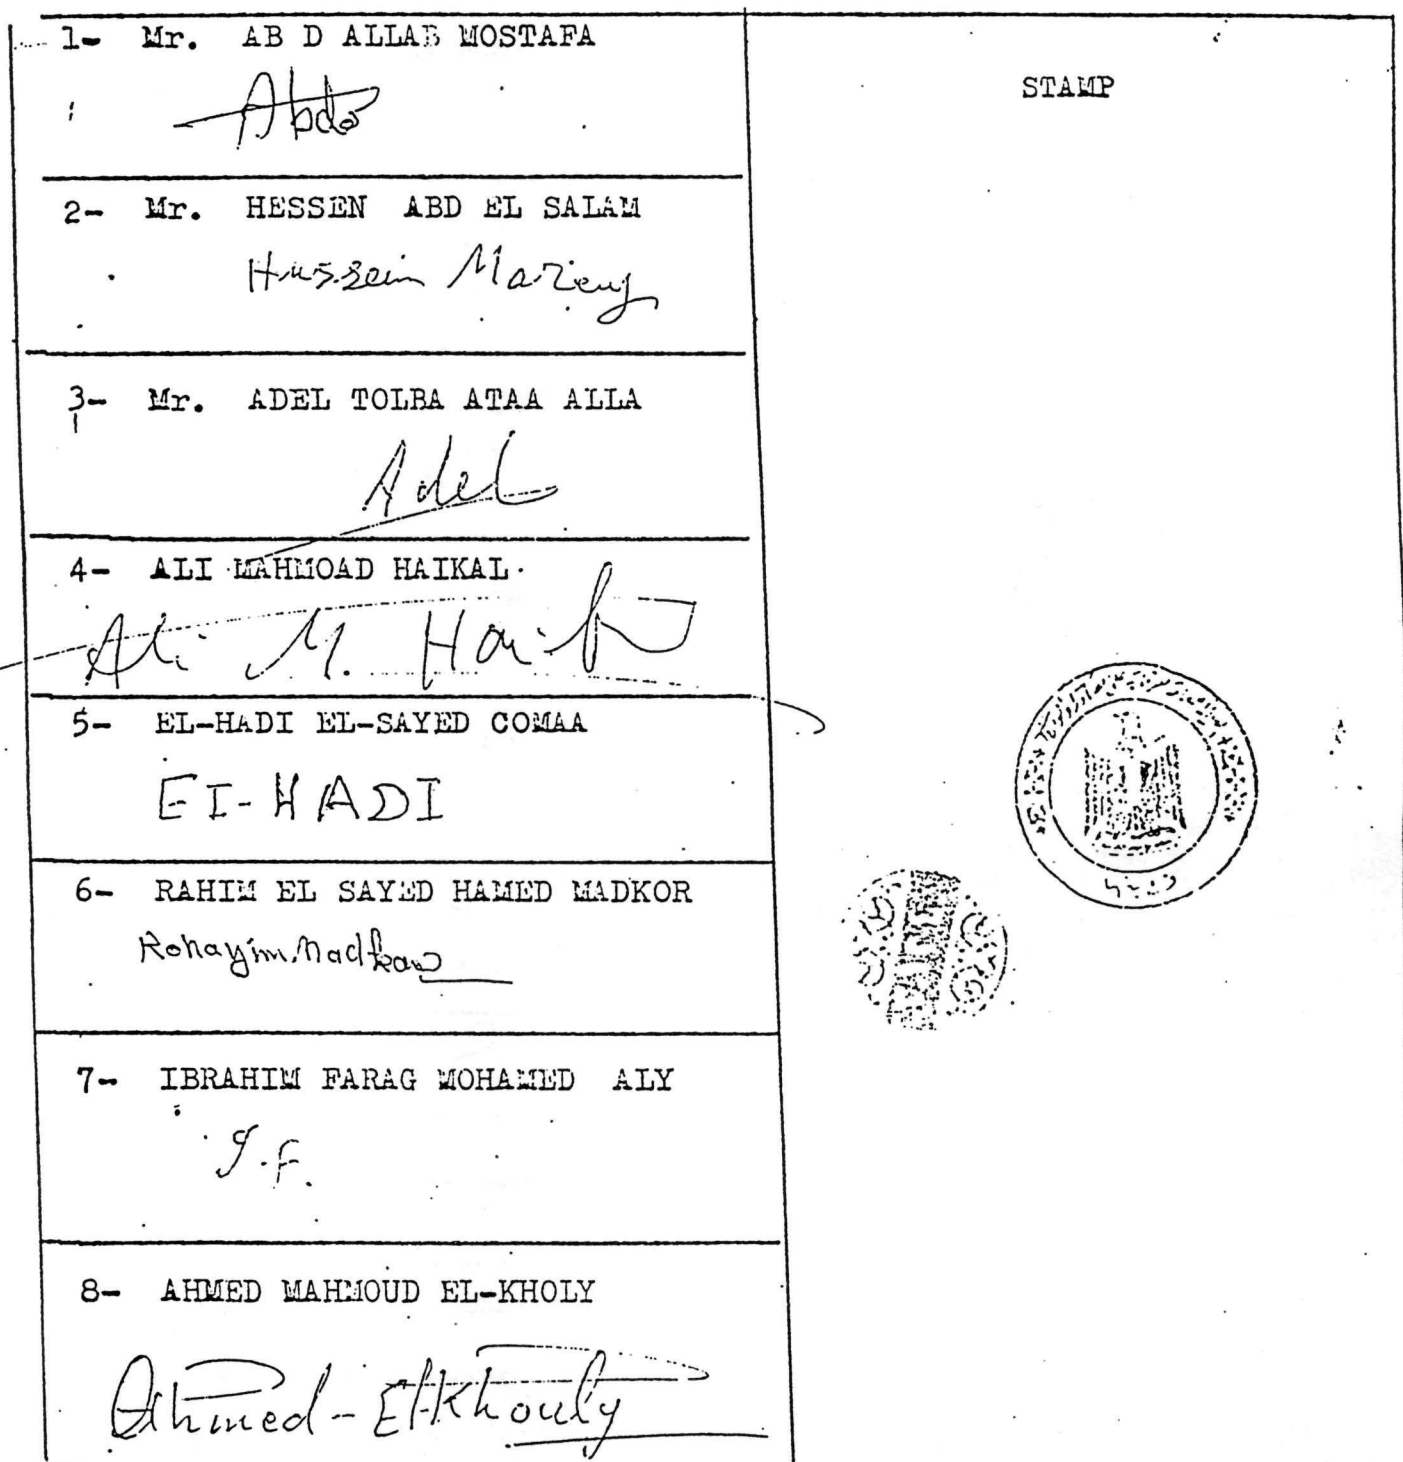 1- Mr. AB D ALLAB MOSTAFA
Abdo
2- Mr. HESSEN ABD EL SALAM
Hussein
3- Mr. ADEL TOLBA ATAA ALLA
Adel
4- ALI MAHMOAD HAIKAL
Ali M.
5- EL-HADI EL-SAYED COMAA
EI-HADI
6- RAHIM EL SAYED HAMED MADKOR
7- IBRAHIM FARAG MOHAMED ALY
I.F.
8- AHMED MAHMOUD EL-KHOLY
Ahmed-El-Khouly
STAMP